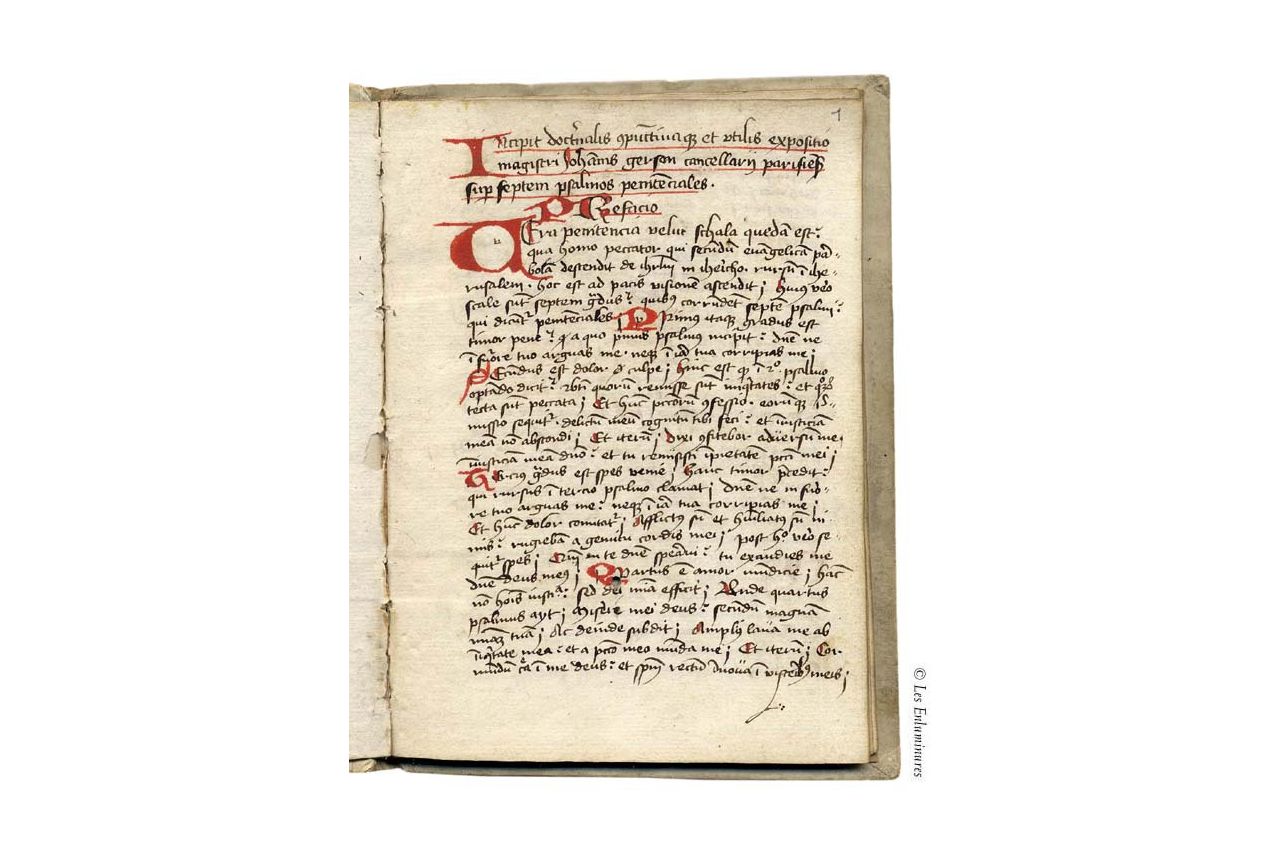 1
Incipit doctrinalis 9pūctiuaqȝ et vtilis expositio
magistri Johānis gerson cancellarii parisieñ
sup septem psalmos penitēciales.
PRefacio
UEra penitencia velut schala quedā est:
qua homo peccator qui secūdū euāgelicā pa-
bolā descendit de ihrlm in ihericho. rursū ī ihe-
rusalem. hoc est ad pacis visionē ascendit; huius vero
scale sūt septem gradus: quibus corrn̄det septē psalmi:
qui dicūt penitēciales; Primus itaqȝ gradus est
timor pene: a quo primus psalmus incipit: dn̄e ne
ī furore tuo arguas me. neqȝ ī irā tua corripias me;
SEcūdus est dolor culpe; hinc est ī 2o psalmo
optādo dicit: bt̄i quorū remisse sūt iniqtates: et quorum
tecta sūt peccata; Et hūc pctorū 9fessio. eorūqȝ re-
missio sequit. delictū meū cognitū tibi feci: et iniusticiā
meā nō abscondi; Et iterū; Dixi 9fitebor aduersū me
iniusticiam meā dn̄o: et tu remisisti ī̄pietatē pcti mei;
TErcius gradus est spes venie; hanc timor precedit:
qui rursus ī tercio psalmo clamat; dn̄e ne in furo-
re tuo arguas me: neqȝ ī irā tua corripias me;
Et hūc dolor comitat; Afflictus sū et humiliatus sū ni-
mis: rugiebā a gemitu cordis mei; post hoc vero se-
quit spes; Qm̄ in te dn̄e speraui: tu exaudies me
dn̄e deus meus; Quartus ē amor mundicie; hanc
nō hois iusticia: sed dei mīa efficit; Unde quartus
psalmus ayt; Misere mei deus: secūdū magnam
miam tuā; Ac deinde subdit; Amplius laua me ab
iniqtate mea: et a pcto meo mūda me; Et iterū; Cor
mundū crea ī me deus: et spm̄ rectū īnoua ī visceribus meis;
© Les Enluminures